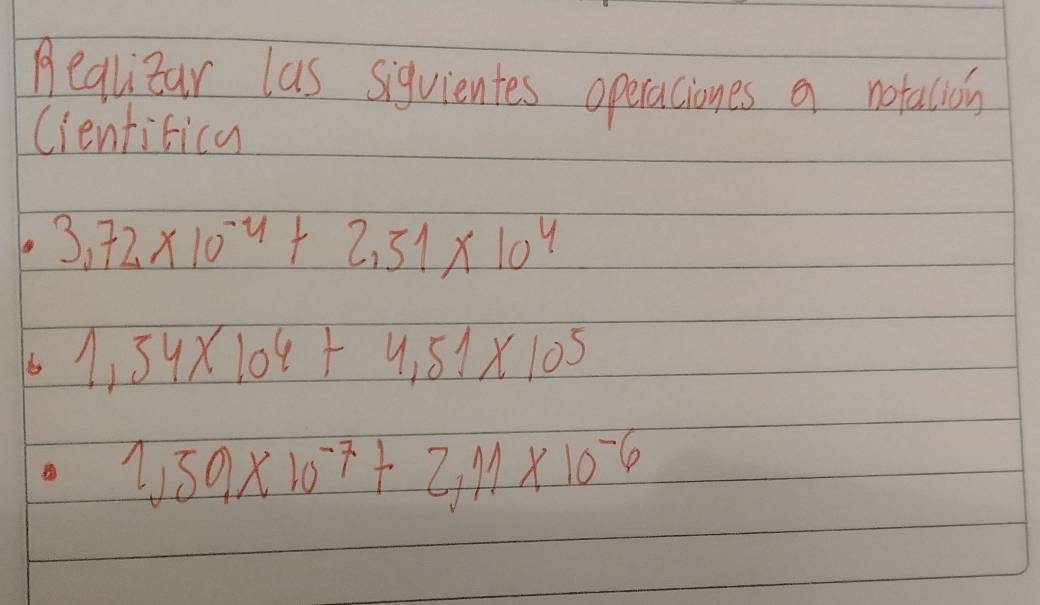 Realizar las siguientes operaciones a notación
Cientifica
• 3,72 x 10⁻⁴ + 2,51 x 10⁴
• 1,54 x 10⁴ + 4,51 x 10⁵
• 1,59 x 10⁻⁷ + 2,11 x 10⁻⁶